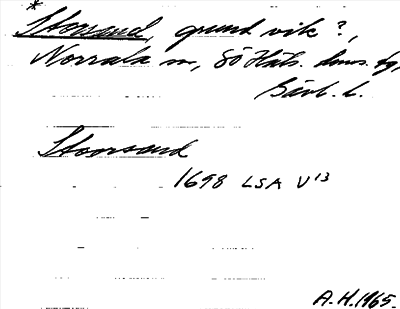 * Storsand, grund vik?,
Norrala sn, Sö Häls. doms. tg,
Gävl. l.
Stoorsand
1698 LSA U13
A.H. 1965.